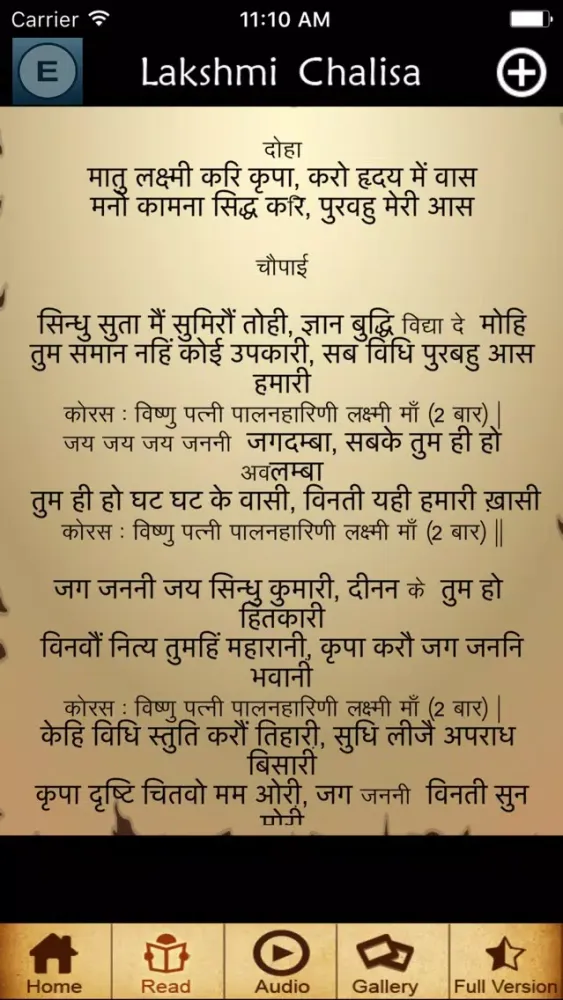 Carrier 11:10 AM
E Lakshmi Chalisa
दोहा
मातु लक्ष्मी करि कृपा, करो हृदय में वास
मनो कामना सिद्ध करि, पुरवहु मेरी आस
चौपाई
सिन्धु सुता मैं सुमिरौं तोही, ज्ञान बुद्धि विद्या दे मोहि
तुम समान नहिं कोई उपकारी, सब विधि पुरबहु आस
हमारी
कोरस : विष्णु पत्नी पालनहारिणी लक्ष्मी माँ (2 बार) |
जय जय जय जननी जगदम्बा, सबके तुम ही हो
अवलम्बा
तुम ही हो घट घट के वासी, विनती यही हमारी ख़ासी
कोरस : विष्णु पत्नी पालनहारिणी लक्ष्मी माँ (2 बार) ||
जग जननी जय सिन्धु कुमारी, दीनन के तुम हो
हितकारी
विनवौं नित्य तुमहिं महारानी, कृपा करौ जग जननि
भवानी
कोरस : विष्णु पत्नी पालनहारिणी लक्ष्मी माँ (2 बार) |
केहि विधि स्तुति करौं तिहारी, सुधि लीजै अपराध
बिसारी
कृपा दृष्टि चितवो मम ओरी, जग जननी विनती सुन
Home Read Audio Gallery Full Version